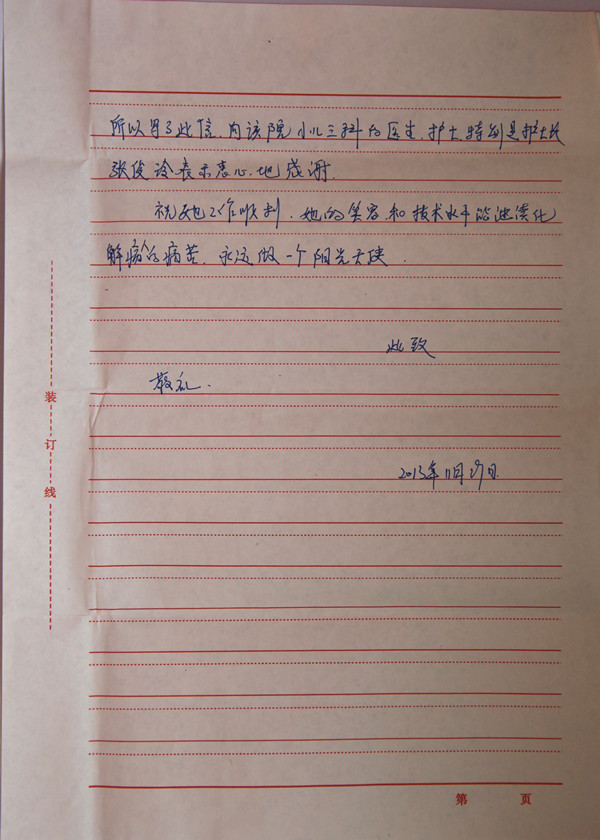 所以写了此信,向该院小儿三科的医生,护士特别是护士长
张俊玲表示衷心地感谢.
祝她工作顺利,她的笑容和技术水平能迅速化
解病人的病苦,永远做一个阳光天使.
此致
敬礼.
2013年11月29日.
装订线
第 页